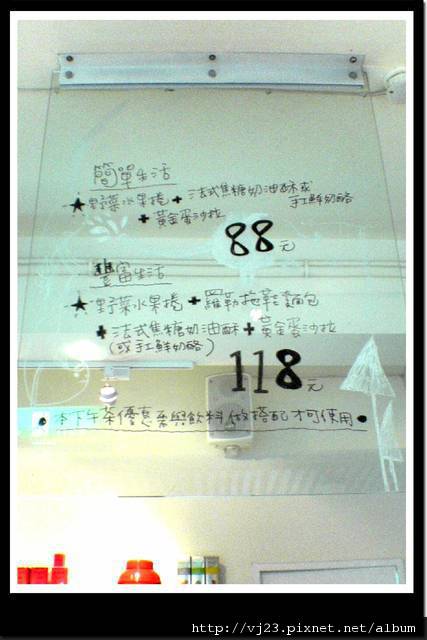 簡單生活
★野菜水果捲 + 法式焦糖奶油酥或
手工鮮奶酪
+ 黃金蛋沙拉
88元
豐富生活
★野菜水果捲 + 羅勒拖鞋麵包
+ 法式焦糖奶油酥 + 黃金蛋沙拉
(或手工鮮奶酪)
118元
●本下午茶優惠需與飲料做搭配才可使用●
http://vj23.pixnet.net/album